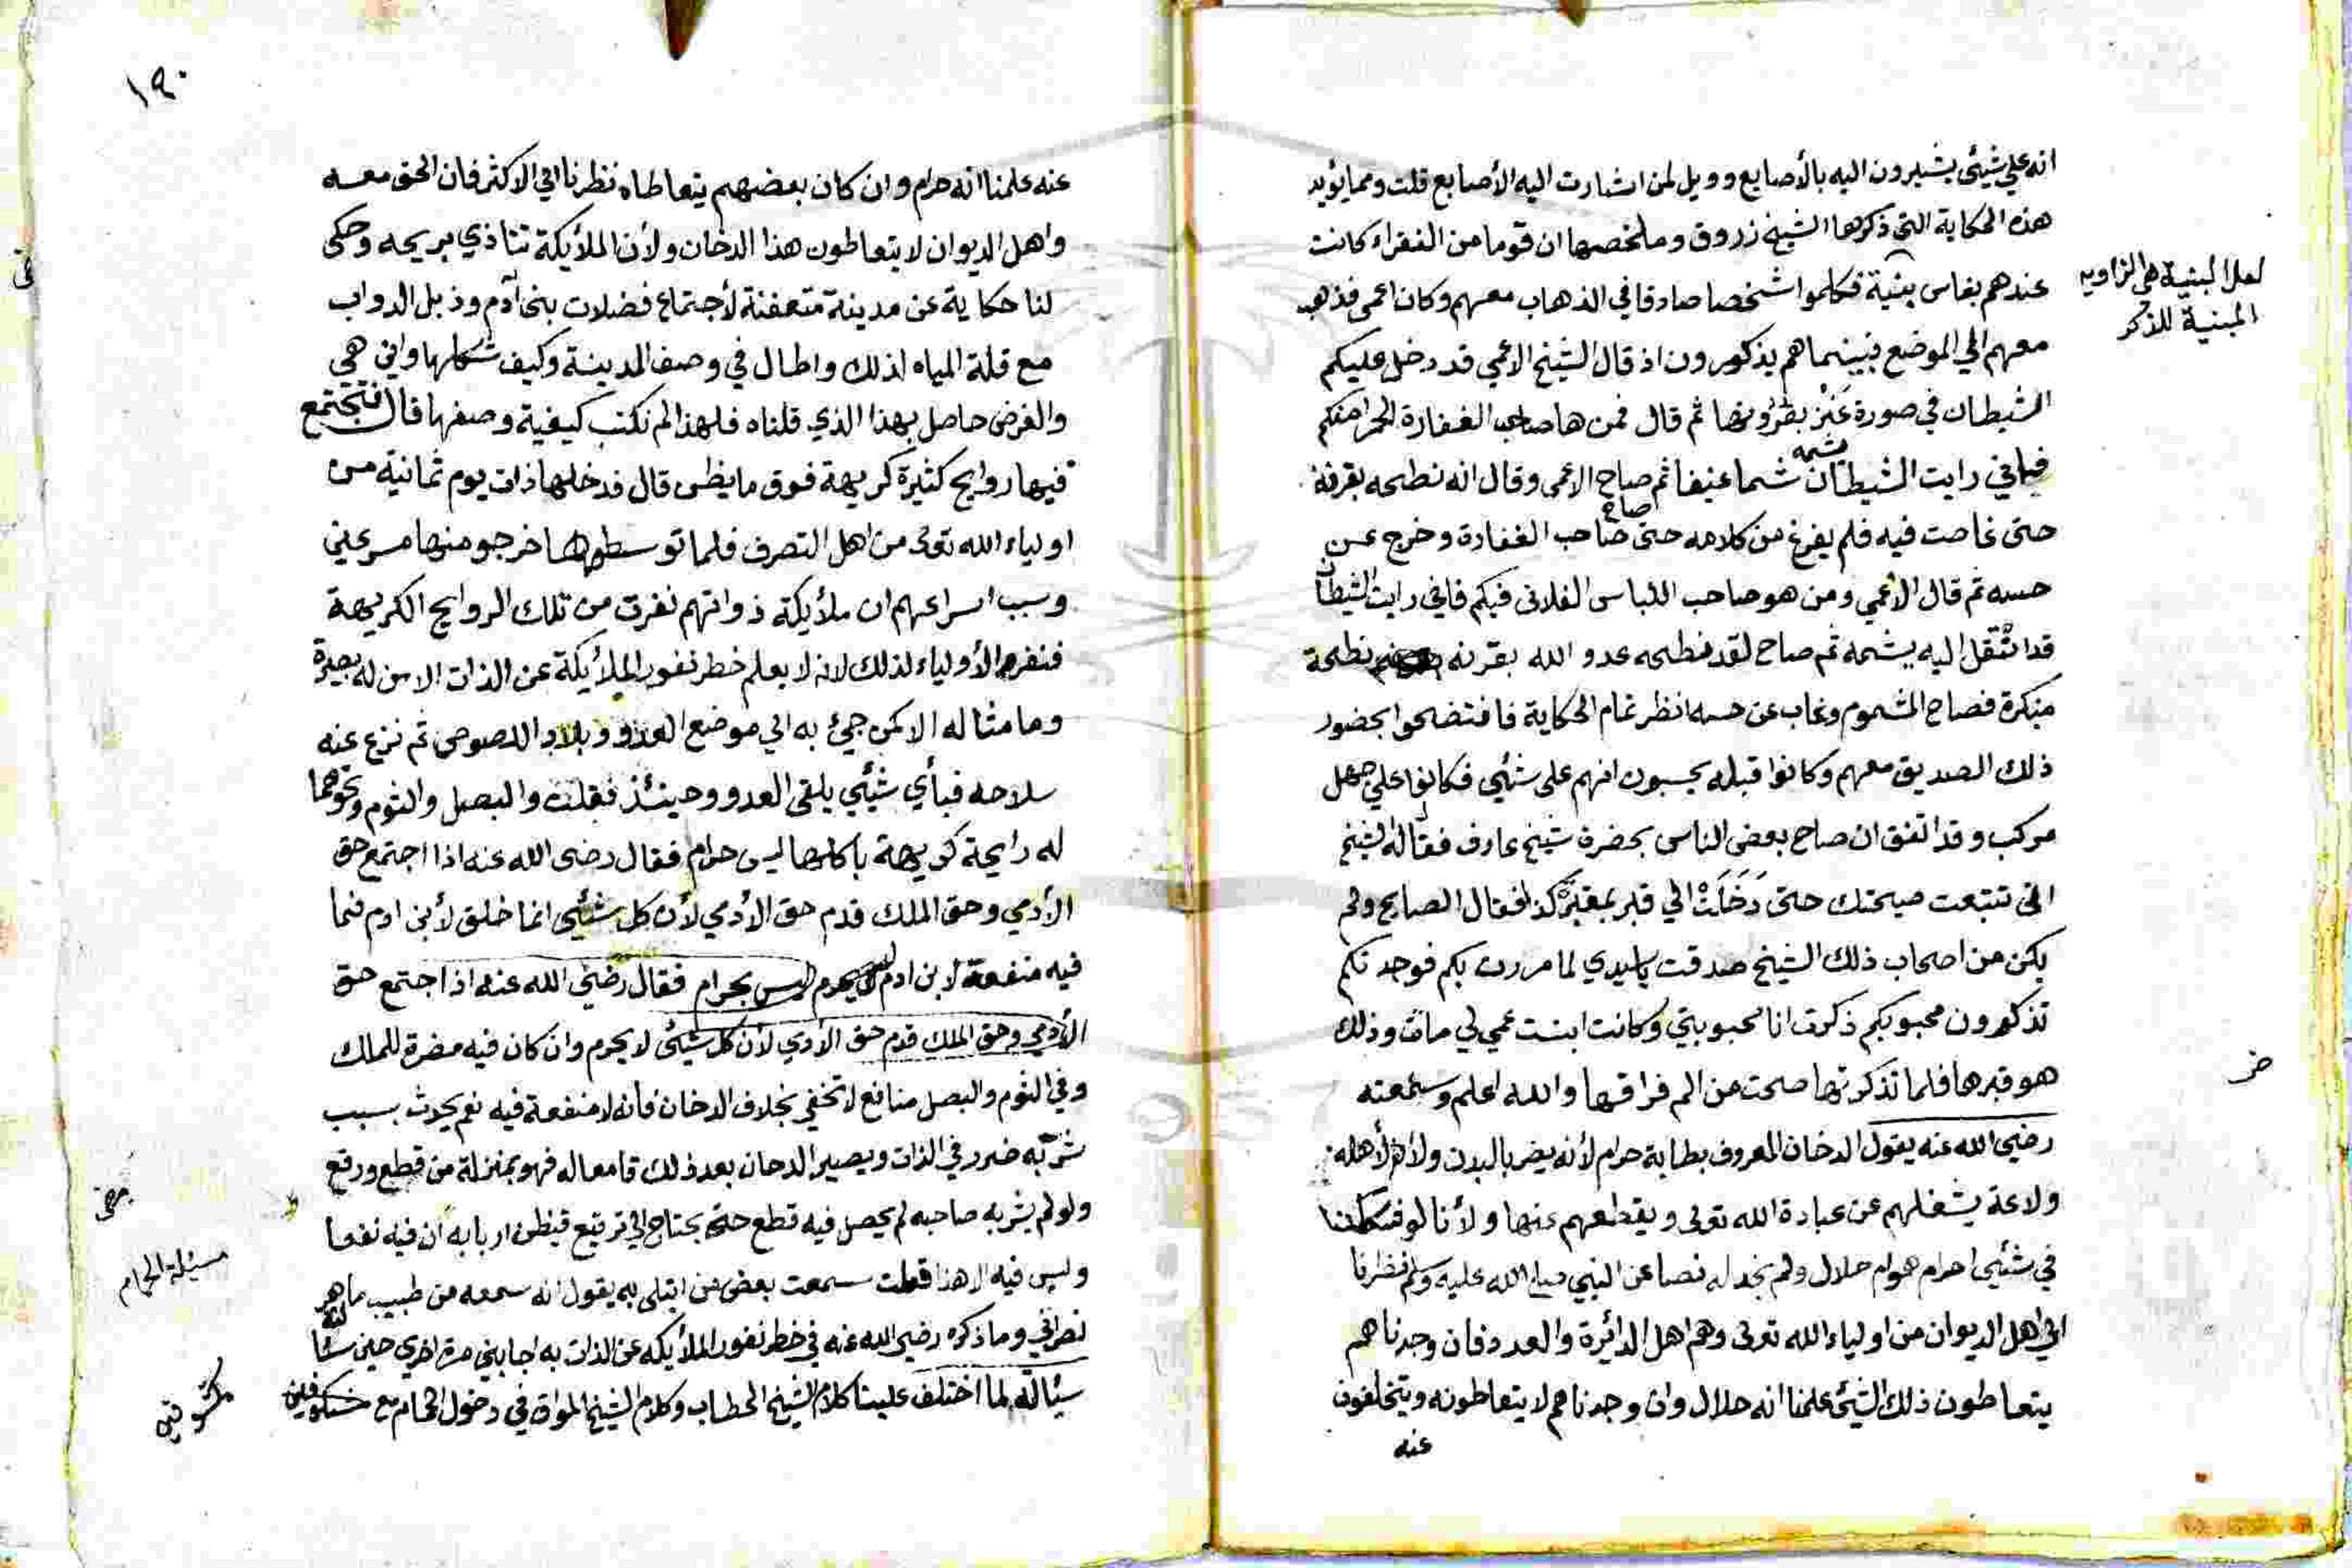 انه علي شيئ يشيرون اليه بالأصابع وويل لمن اشارت اليه الأصابع قلت ومما يؤيد
هذه الحكاية التي ذكرها الشيخ زروق وملخصها ان قوما من الفقراء كانت
عندهم بفاس بنية فكلموا شخصا صادقا في الذهاب معهم وكان اعمى فذهب
لعل البنية هي الزاويه
المبنية للذكر
معهم الي الموضع فبينما هم يذكرون اذ قال الشيخ الاعمي قد دخل عليكم
الشيطان في صورة عنز بقرونها ثم قال فمن ها صاحب الغفارة الحمرا منكم
فاني رايت الشيطان يشمه شما عنيفا ثم صاح الاعمى وقال انه نطحه بقرنه
حتى غاصت فيه فلم يفرغ من كلامه حتى صاح صاحب الغفارة وخرج عن
حسه ثم قال الاعمي ومن هو صاحب اللباس الفلانى فيكم فاني رايت الشيطان
قد انتقل اليه يشمه ثم صاح لقد نطحه عدو الله بقرنه نطحة
منكرة فصاح المشموم وغاب عن حسه انظر تمام الحكاية فافتضحوا بحضور
ذلك الصديق معهم وكانوا قبله يحسبون انهم على شئي فكانوا علي جهل
مركب وقد اتفق ان صاح بعض الناس بحضرة شيخ عارف فقال له الشيخ
انى تتبعت صيحتك حتى دخلت الي قبر بمقبرة كذا فقال الصايح ولم
يكن من اصحاب ذلك الشيخ صدقت ياسيدي لما مررت بكم فوجدتكم
تذكرون محبوبكم ذكرت انا محبوبتي وكانت ابنت عمي لي ماتت وذلك
هو قبرها فلما تذكرتها صحت من الم فراقها والله اعلم وسمعته
رضي الله عنه يقول الدخان المعروف بطابة حرام لأنه يضر بالبدن ولأن لأهله
ولاعة يشغلهم عن عبادة الله تعالى ويقطعهم عنها ولأنا لو شككنا
في شئيي احرام هو ام حلال ولم نجد له نصا عن النبي صلى الله عليه وسلم نظرنا
الي اهل الديوان من اولياء الله تعالى وهم اهل الدائرة والعدد فان وجدناهم
يتعاطون ذلك الشيئ علمنا انه حلال وان وجدناهم لا يتعاطونه ويتخلفون
عنه
١٩٠
عنه علمنا انه حرام وان كان بعضهم يتعاطاه نظرنا الي الاكثر فان الحق معه
واهل الديوان لا يتعاطون هذا الدخان ولأن الملأيكة تتاذي بريحه وحكى
لنا حكاية عن مدينة متعفنة لأجتماع فضلات بنى آدم وزبل الدواب
مع قلة المياه لذلك واطال في وصف المدينة وكيف شكلها واين هي
والغرض حاصل بهذا الذي قلناه فلهذا لم نكتب كيفية وصفها قال فتجتمع
فيها روايح كثيرة كريهة فوق ما يظن قال فدخلها ذات يوم ثمانية من
اولياء الله تعالى من اهل التصرف فلما توسطوها خرجو منها مسرعين
وسبب اسراعهم ان ملأيكة ذواتهم نفرت من تلك الروايح الكريهة
فنفر الأولياء لذلك لانه لا يعلم خطر نفور الملأيكة عن الذات الا من له بصيرة
وما مثاله الا كمن جيئ به الي موضع العدو وبلاد اللصوص ثم نزع عنه
سلاحه فبأي شيئي يلقى العدو وحينئذ فقلت والبصل والثوم ونحوهما
له رايحة كريهة باكلها ليس حرام فقال رضى الله عنه اذا اجتمع حق
الأدمي وحق الملك قدم حق الأدمي لأن كل شيئي انما خلق لأبن ادم فما
فيه منفعة لابن ادم لا يحرم ليس بحرام فقال رضي الله عنه اذا جتمع حق
الأدمي وحق الملك قدم حق الأدمي لأن كل شيئ لا يحرم وان كان فيه مضرة للملك
وفي الثوم والبصل منافع لا تخفي بخلاف الدخان فانه لا منفعة فيه نعم يحدث بسبب
شربه ضرر في الذات ويصير الدخان بعد ذلك قامعا له فهو بمنزلة من قطع ورقع
ولو لم يشربه صاحبه لم يحصل فيه قطع حتى يحتاج الي ترقيع فيظن اربابه ان فيه نفعا
وليس فيه الا هذا قلت سمعت بعض من ابتلى به يقول انه سمعه من طبيب ماهر
نصراني وما ذكره رضي الله عنه في خطر نفور الملأيكه عن الذات به اجابني مرة اخري حين
سئالته لما اختلف علينا كلام الشيخ الحطاب وكلام الشيخ المواق في دخول الحمام مع مكشوفين
مسئلة الحمام